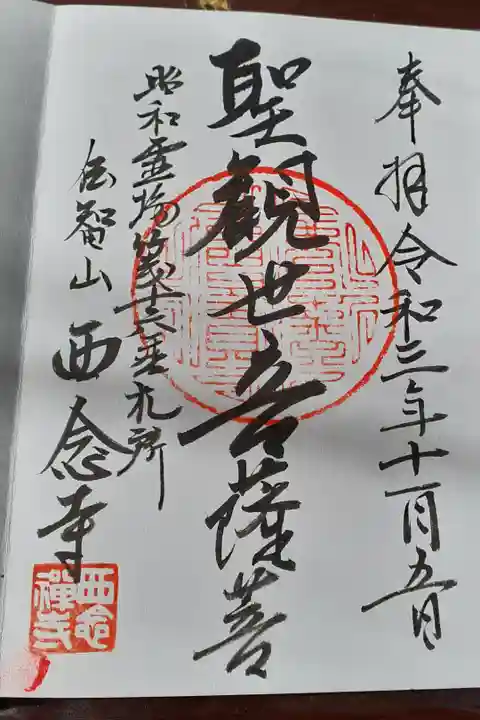 奉拝 令和三年十一月五日
聖観世音薩菩
昭和霊場第十六番札所
智山 西念寺
西念禅寺